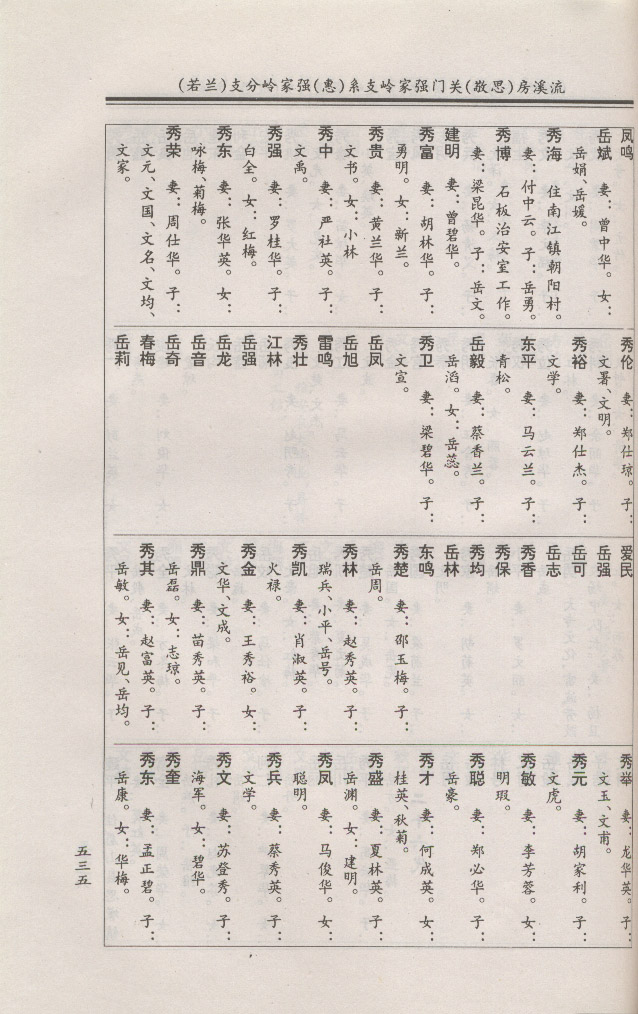 流溪房(思敬)关门强家岭支系(惠)强家岭分支(兰若)
凤鸣
岳斌 妻:曾中华。女:
岳娟、岳媛。
秀海 住南江镇朝阳村。
妻:付中云。子:岳勇。
秀博 石板治安室工作。
妻:梁昆华。子:岳文。
建明 妻:曾碧华。
秀富 妻:胡林华。子:
勇明。女:新兰。
秀贵 妻:黄兰华。子:
文书。女:小林
秀中 妻:严社英。子:
文禹。
秀强 妻:罗桂华。子:
白全。女:红梅。
秀东 妻:张华英。女:
咏梅、菊梅。
秀荣 妻:周仕华。子:
文元、文国、文名、文均、
文家。
秀伦 妻:郑仕琼。子:
文署、文明。
秀裕 妻:郑仕杰。子:
文学。
东平 妻:马云兰。子:
青松。
岳毅 妻:蔡香兰。子:
岳滔。女:岳蕊。
秀卫 妻:梁碧华。子:
文宣。
岳凤
岳旭
雷鸣
秀壮
江林
岳强
岳龙
岳音
岳奇
春梅
岳莉
爱民
岳强
岳可
岳志
秀香
秀保
秀均
岳林
东鸣
秀楚 妻:邵玉梅。子:
岳周。
秀林 妻:赵秀英。子:
瑞兵、小平、岳号。
秀凯 妻:肖淑英。子:
火禄。
秀金 妻:王秀裕。女:
文华、文成。
秀鼎 妻:苗秀英。子:
岳磊。女:志琼。
秀其 妻:赵富英。子:
岳敏。女:岳见、岳均。
秀举 妻:龙华英。子:
文玉、文甫。
秀元 妻:胡家利。子:
文虎。
秀敏 妻:李芳蓉。女:
明瑕。
秀聪 妻:郑必华。子:
岳豪。
秀才 妻:何成英。女:
桂英、秋菊。
秀盛 妻:夏林英。子:
岳渊。女:建明。
秀凤 妻:马俊华。女:
聪明。
秀兵 妻:蔡秀英。子:
文学。
秀文 妻:苏登秀。子:
海军。女:碧华。
秀奎
秀东 妻:孟正碧。子:
岳康。女:华梅。
五三五